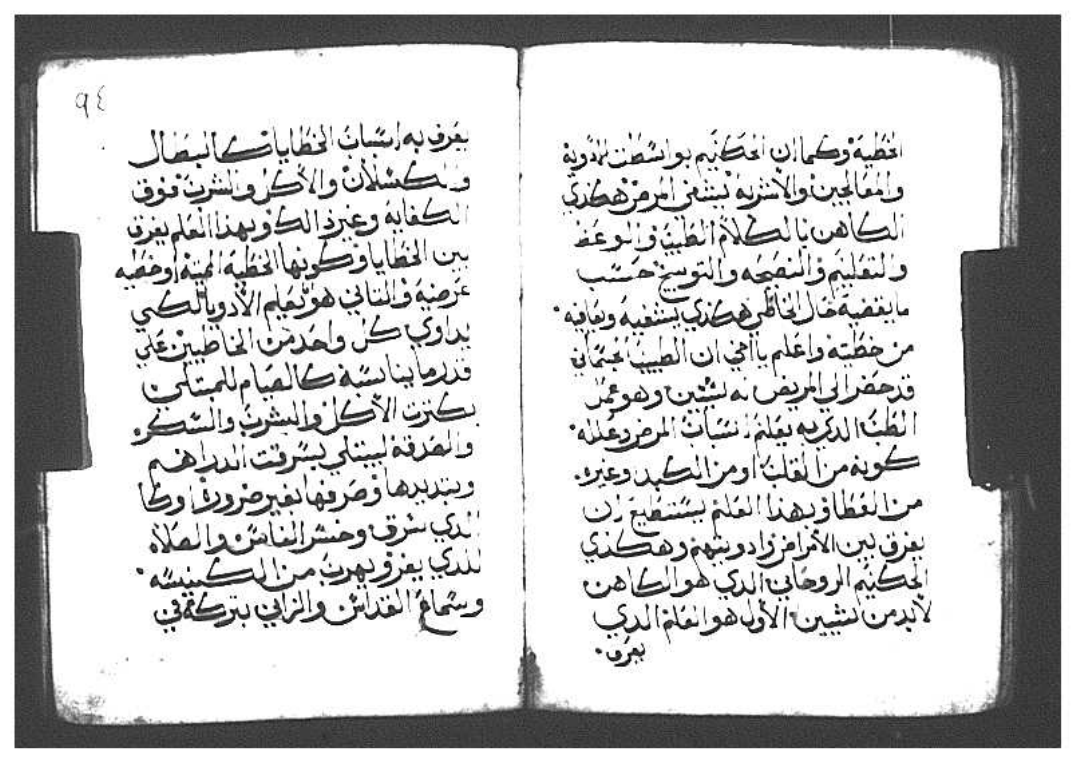 الخطية وكما ان الحكيم بواسطت الادوية
والمعالجين والاشربة يشفي المرض هكدي
الكاهن بالكلام الطيب والوعظ
والتعليم والنصيحه والتوبيخ حسب
ما يقضيه حال الخاطي هكدي يشفيه ويعافيه
من خطيته واعلم يا اخي ان الطبيب الجسماني
قد حضر الي المريض به لشيين وهو عمل
الطب الدي به يعلم اسباب المرض وعلله
كونه من القلب او من الكبد وغيره
من العطا وبهدا العلم يستطيع ان
يفرق بين الامراض وادويتهم وهكدي
الحكيم الروحاني الدي هو الكاهن
لابد من شيين الاول هو العلم الدي
يعرف
٩٤
يعرف به اسباب الخطايا كالبطال
والكسلان والاكل والشرب فوق
الكفايه وغير دالك وبهدا العلم يعرف
بين الخطايا وكونها الخطية المميته او خطيه
عرضية والتاني هو تعليم الادويا لكي
يداوي كل واحد من الخاطيين علي
قدر ما يناسبه كالصيام للمبتلي
بكترت الاكل والشرب والسكر
والصدقه لمبتلي بسرقت الدراهم
وبتديدها وصرفها بغير ضرورة او كا
الدي سرق وخسر الناس والصلاه
للدي يفر ويهرب من الكنيسه
وسماع القداس والزاني بتركه في